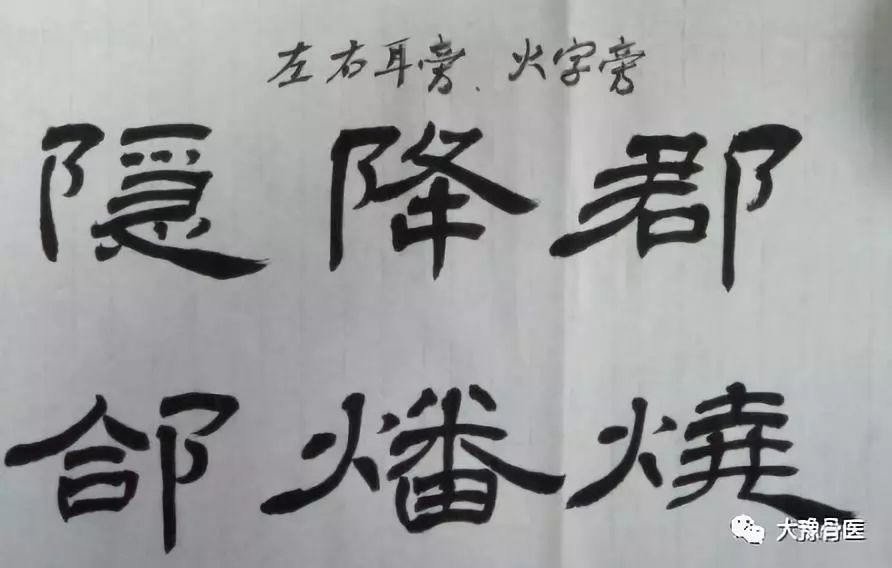 左右耳旁、火字旁
隱降郡
郃燔燒
大豫骨医